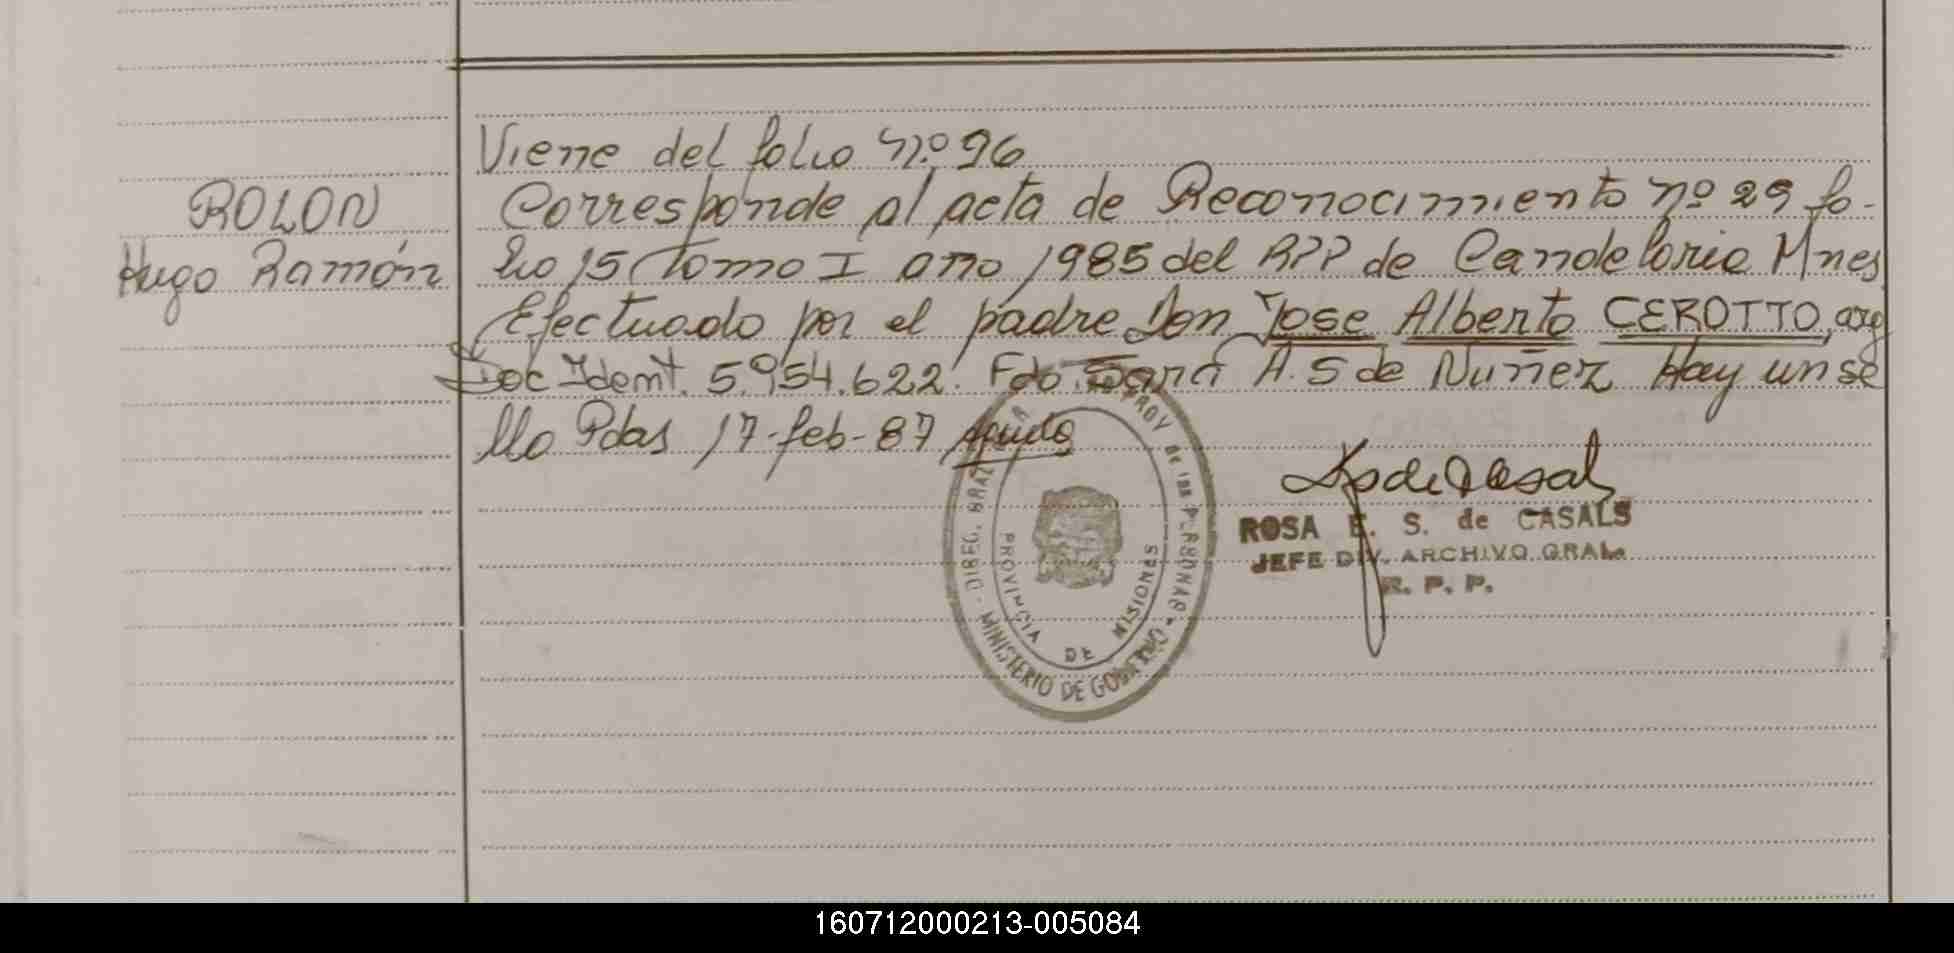 Viene del folio nº 96
ROLON
Hugo Ramón
Corresponde al acta de Reconocimiento nº 29 fo-
lio 15 Tomo I año 1985 del RPP de Candelaria Mnes
Efectuado por el padre Don Jose Alberto CEROTTO, arg
Doc Ident. 5.954.622. Fdo Sara A. S de Nuñez Hay un se
llo Pdas 17-feb-87
ROSA E. S. de CASALS
JEFE DIV. ARCHIVO GRAL.
R. P. P.
PROV de las PERSONAS - MINISTERIO DE GOBIERNO - DIREC. GRAL
PROVINCIA DE MISIONES
160712000213-005084